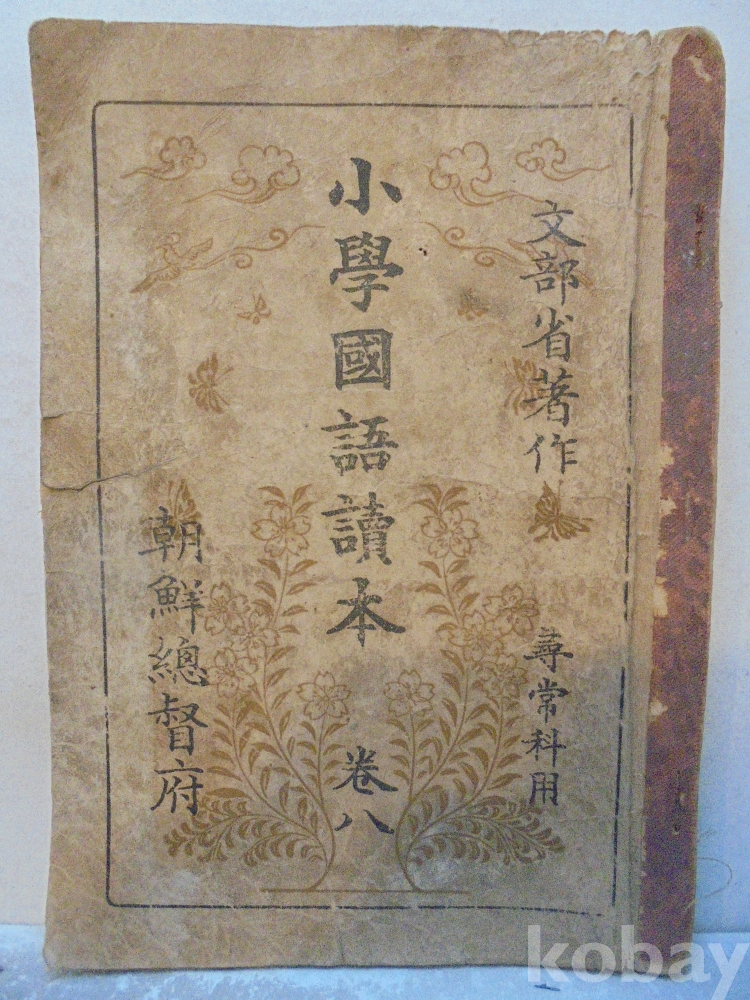 文部省著作
尋常科用
小學國語讀本
卷八
朝鮮總督府
kobay